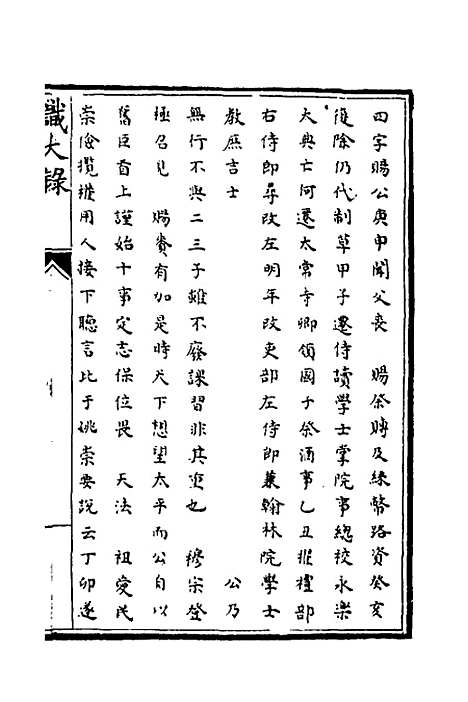 四字賜公庚申聞父喪　賜祭賻及綵幣路資癸亥
復除仍代制草甲子遷侍讀學士掌院事總校永樂
大典亡何遷太常寺卿領國子祭酒事乙丑擢禮部
右侍郎尋改左明年改吏部左侍郎兼翰林院學士
教庶吉士　公乃
無行不與二三子雖不廢課習非其進也　穆宗登
極召見　賜賚有加是時天下想望太平而公自以
舊臣首上謹始十事定志保位畏　天法　祖愛民
崇儉攬權用人接下聽言比于姚崇要說云丁卯遂
識大錄